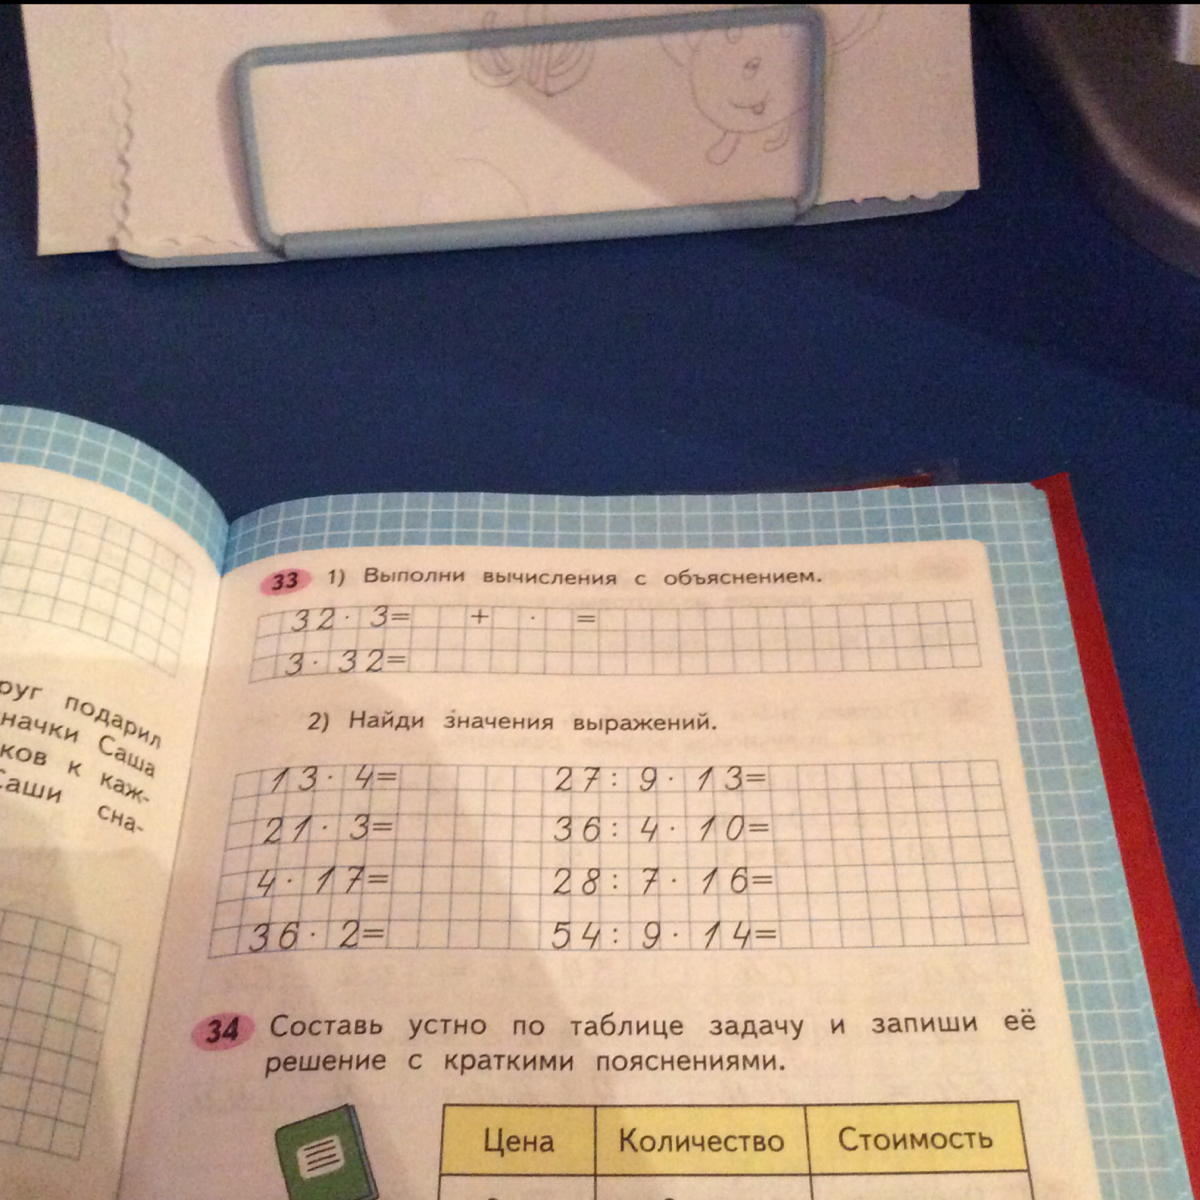 руг подарил
начки Саша
ков к каж-
Саши сна-
33 1) Выполни вычисления с объяснением.
32 · 3= + · =
3 · 32=
2) Найди значения выражений.
13 · 4= 27 : 9 · 13=
21 · 3= 36 : 4 · 10=
4 · 17= 28 : 7 · 16=
36 · 2= 54 : 9 · 14=
34 Составь устно по таблице задачу и запиши её
решение с краткими пояснениями.
Цена Количество Стоимость